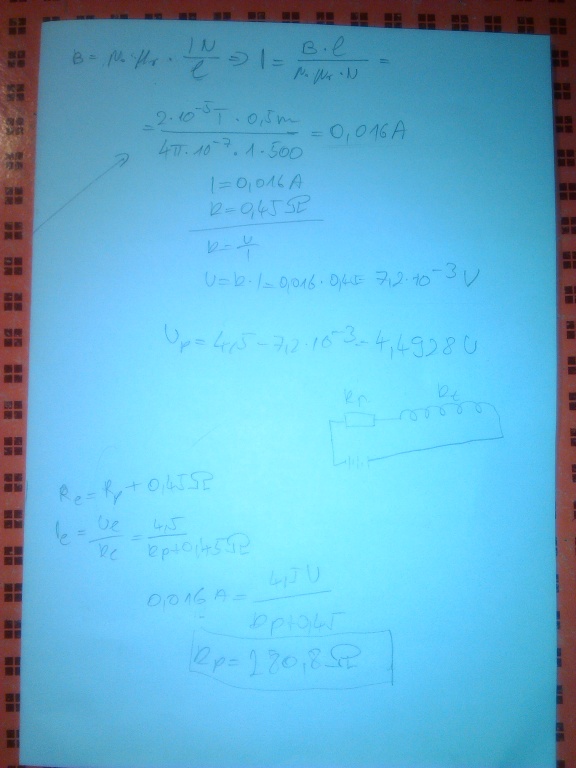 B = μ₀·μᵣ · IN/l ⇒ I = B·l/μ₀·μᵣ·N =
= 2·10⁻⁵T · 0,5m/4π·10⁻⁷·1·500 = 0,016A
I = 0,016A
R = 0,45Ω
R = U/I
U = R·I = 0,016·0,45 = 7,2·10⁻³ V
Up = 4,5 - 7,2·10⁻³ = 4,4928 V
Rp Rt
Re = Rp + 0,45Ω
Ie = Ue/Re = 4,5/Rp+0,45Ω
0,016 A = 4,5 V/Rp+0,45
Rp = 280,8Ω